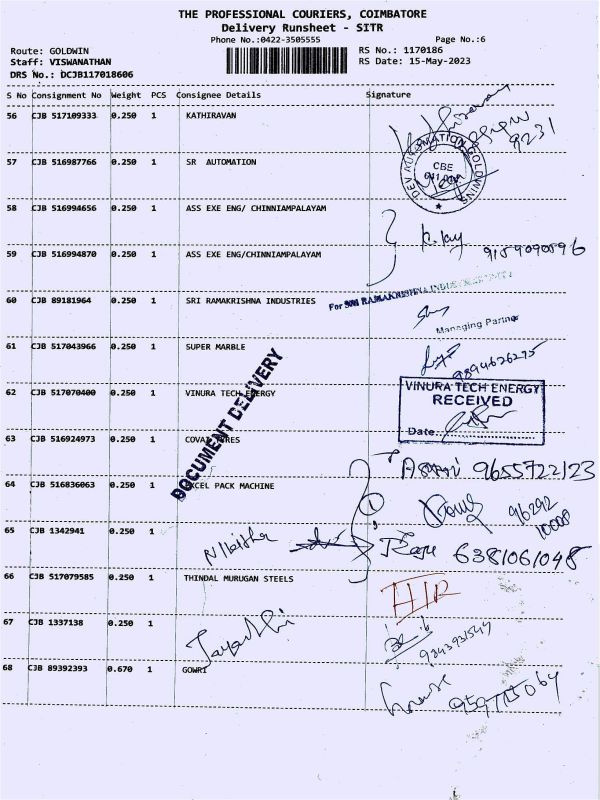 THE PROFESSIONAL COURIERS, COIMBATORE
Delivery Runsheet - SITR
Phone No.:0422-3505555 Page No.:6
Route: GOLDWIN RS No.: 1170186
Staff: VISWANATHAN RS Date: 15-May-2023
DRS No.: DCJB117018606
S No Consignment No Weight PCS Consignee Details Signature
56 CJB 517109333 0.250 1 KATHIRAVAN
9231
57 CJB 516987766 0.250 1 SR AUTOMATION
DEV AUTOMATION GOLDWINS
CBE
58 CJB 516994656 0.250 1 ASS EXE ENG/ CHINNIAMPALAYAM
59 CJB 516994870 0.250 1 ASS EXE ENG/CHINNIAMPALAYAM
9159090896
60 CJB 89181964 0.250 1 SRI RAMAKRISHNA INDUSTRIES
For SRI RAMAKRISHNA
Managing Partner
61 CJB 517043966 0.250 1 SUPER MARBLE
9894626275
62 CJB 517070400 0.250 1 VINURA TECH ENERGY
VINURA TECH ENERGY
RECEIVED
Date
DOCUMENT DELIVERY
63 CJB 516924973 0.250 1 COVAI
9655722123
64 CJB 516836063 0.250 1 EXCEL PACK MACHINE
1
96292
10000
65 CJB 1342941 0.250 1
6381061048
66 CJB 517079585 0.250 1 THINDAL MURUGAN STEELS
67 CJB 1337138 0.250 1
9243931547
68 CJB 89392393 0.670 1 GOWRI